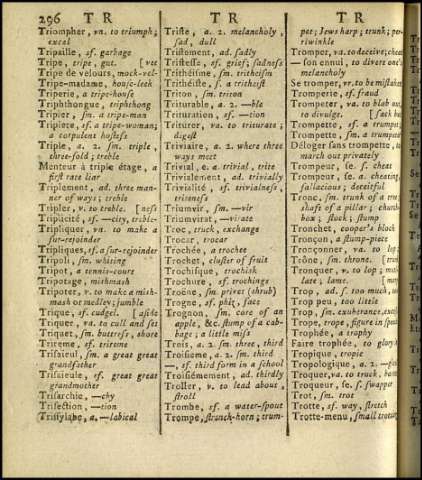 296 T R T R T R
Triompher, vn. to triumph;
excel
Tripaille, sf. garbage
Tripe, tripe, gut. [vet
Tripe de velours, mock-vel-
Tripe-madame, house-leek
Triperie, a tripe-house
Triphthongue, triphthong
Tripier, sm. a tripe-man
Tripiere, sf. a tripe-woman;
a corpulent hostess
Triple, a. 2. sm. triple,
three-fold; treble
Menteur à triple étage, a
first rate liar
Triplement, ad. three man-
ner of ways; treble
Tripler, v. to treble. [ness
Triplicité, sf. —city, treble-
Tripliquer, vn. to make a
sur-rejoinder
Tripliques, sf. a sur-rejoinder
Tripoli, sm. whiting
Tripot, a tennis-court
Tripotage, mishmash
Tripoter, v. to make a mish-
mash or medley; jumble
Trique, sf. cudgel. [aside
Triquer, va. to cull and set
Triquet, sm. buttress, shore
Trireme, sf. trireme
Trisaieul, sm. a great great
grandfather
Trisaieule, sf. great great
grandmother
Trisarchie, —chy
Trisection, —tion
Trissylabe, a. —labical
Triste, a. 2. melancholy,
sad, dull
Tristement, ad. sadly
Tristesse, sf. grief; sadness
Trithéisme, sm. tritheism
Trithéiste, s. a tritheist
Triton, sm. triton
Triturable, a. 2. —ble
Trituration, sf. —tion
Triturer, va. to triturate;
digest
Triviaire, a. 2. where three
ways meet
Trivial, e. a. trivial, trite
Trivialement, ad. trivially
Trivialité, sf. trivialness,
triteness
Triumvir, sm. —vir
Triumvirat, —virate
Troc, truck, exchange
Trocar, trocar
Trochée, a trochee
Trochet, cluster of fruit
Trochisque, trochisk
Trochure, sf. trochings
Troëne, sm. privet (shrub)
Trogne, sf. phiz, face
Trognon, sm. core of an
apple, &c. stump of a cab-
bage; a little miss
Trois, a. 2. sm. three, third
Troisieme, a. 2. sm. third
—, sf. third form in a school
Troisiémement, ad. thirdly
Troller, v. to lead about,
stroll
Trombe, sf. a water-spout
Trompe, strunch-horn; trum-
pet; Jews harp; trunk; pe-
riwinkle
Tromper, va. to deceive; cheat
— son ennui, to divert one's
melancholy
Se tromper, vr. to be mistaken
Tromperie, sf. fraud
Trompeter, va. to blab out,
to divulge.
Trompette, sf. a trumpet
Trompette, sm. a trumpeter
Déloger sans trompette, to
march out privately
Trompeur, se. s. cheat
Trompeur, se. a. cheating,
fallacious; deceitful
Tronc, sm. trunk of a tree;
shaft of a pillar; church
box; stock; stump
Tronchet, cooper's block
Tronçon, a stump-piece
Tronçonner, va. to lop
Trône, sm. throne.
Tronquer, v. to lop; muti-
late; lame.
Trop, ad. s. too much, too
Trop peu, too little
Trop, sm. exuberance, excess
Trope, trope, figure in speech
Trophée, a trophy
Faire trophée, to glory
Tropique, tropic
Tropologique, a. 2.
Troquer, va. to truck,
Troqueur, se. s. swapper
Trot, sm. trot
Trotte, sf. way, stretch
Trotte-menu, small trotting